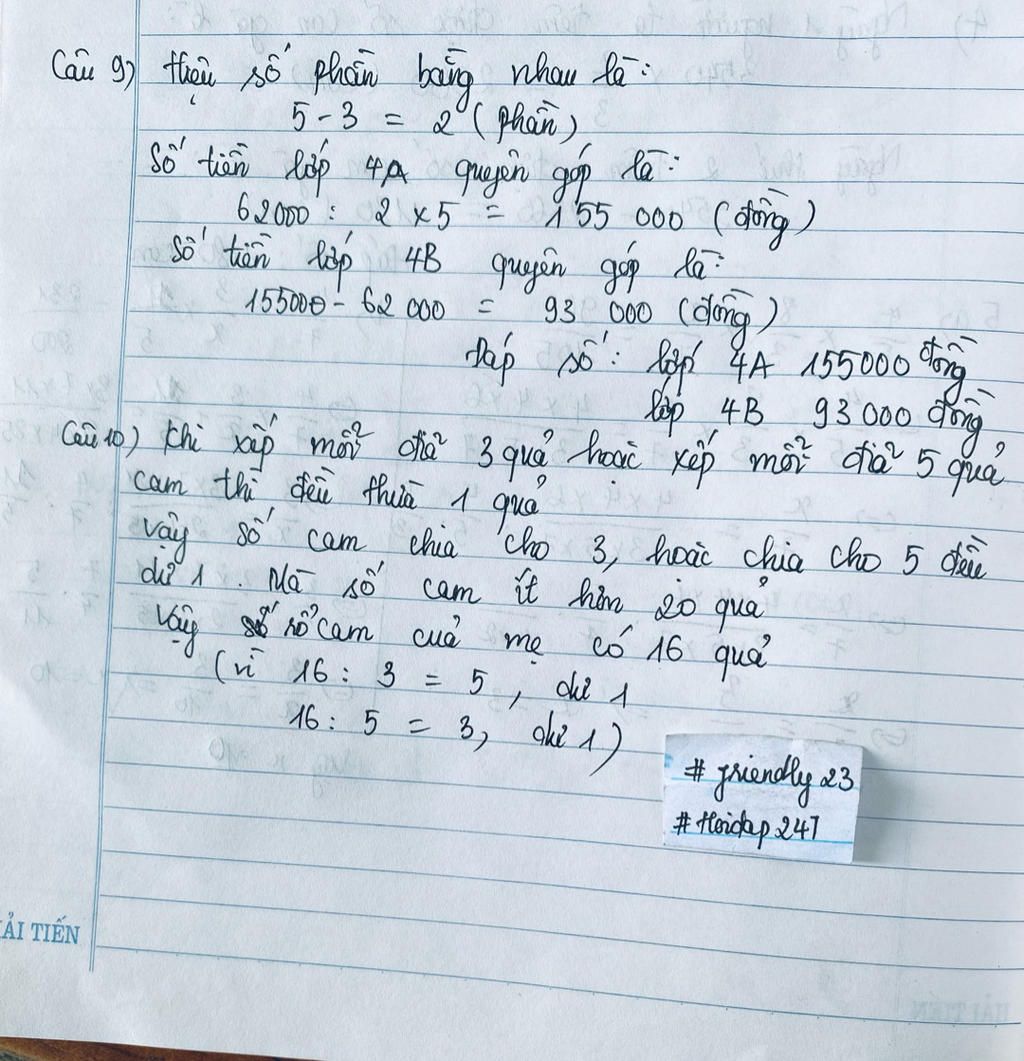 Câu 9) Hiệu số phần bằng nhau là:
5 - 3 = 2 (phần)
Số tiền lớp 4A quyên góp là:
62000 : 2 x 5 = 155 000 (đồng)
Số tiền lớp 4B quyên góp là:
155000 - 62 000 = 93 000 (đồng)
Đáp số: lớp 4A 155000 đồng
lớp 4B 93 000 đồng
Câu 10) Khi xếp mỗi đĩa 3 quả hoặc xếp mỗi đĩa 5 quả
cam thì đều thừa 1 quả
Vậy số cam chia cho 3, hoặc chia cho 5 đều
dư 1 Mà số cam ít hơn 20 quả
Vậy số cam của mẹ có 16 quả
(vì 16 : 3 = 5, dư 1
16 : 5 = 3, dư 1)
# friendly 23
# Hoidap 247
ẢI TIẾN